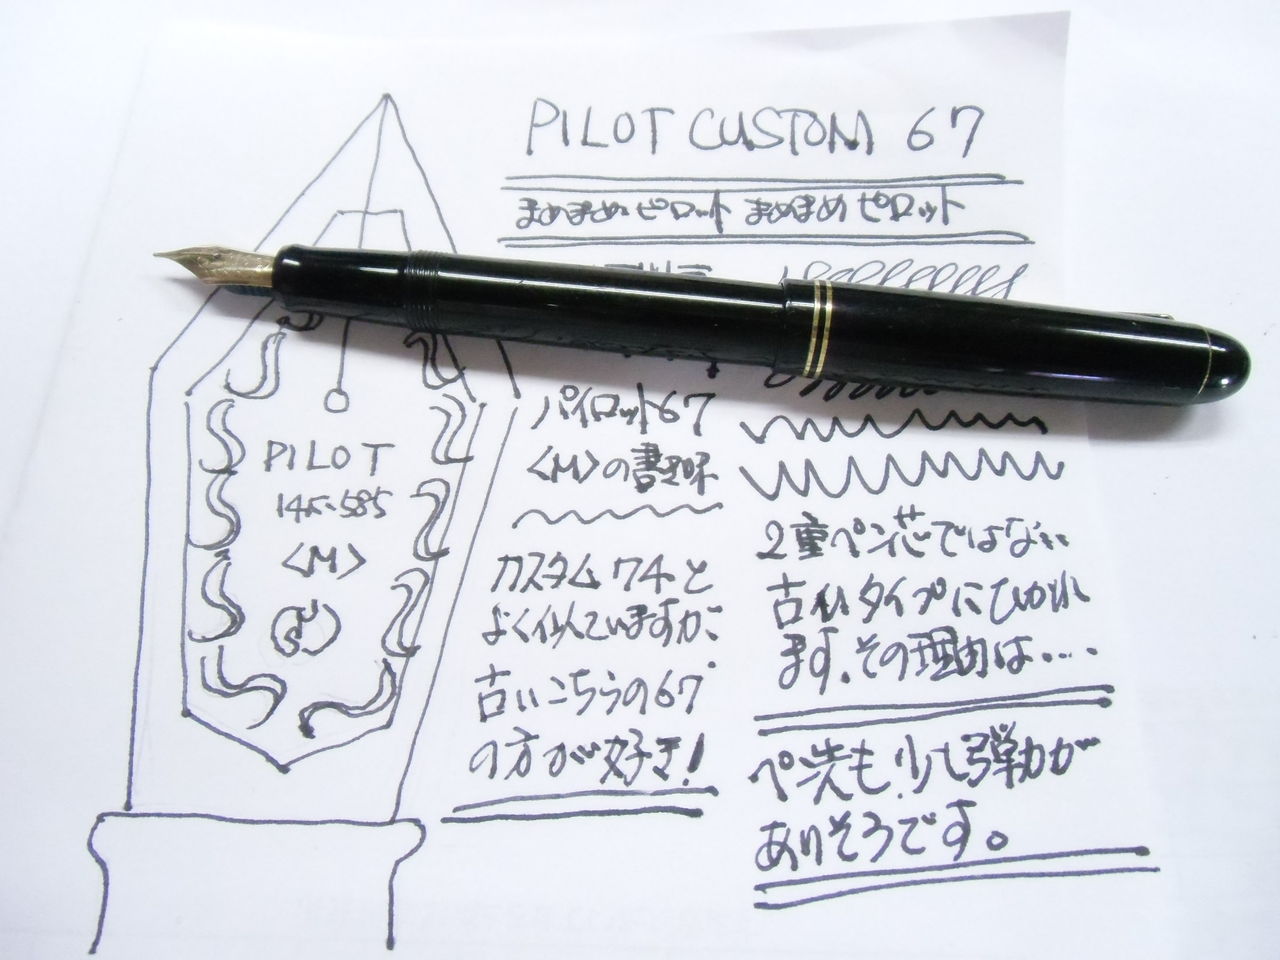 PILOT CUSTOM 67
まめまめピロット まめまめピロット
PILOT
14K-585
<M>
パイロット67
<M>の書き味
カスタム74と
よく似ていますが、
古いこちらの67
の方が好き!
2重ペン芯ではない
古いタイプにひかれ
ます。その理由は....
ペン先も、少し弾力が
ありそうです。